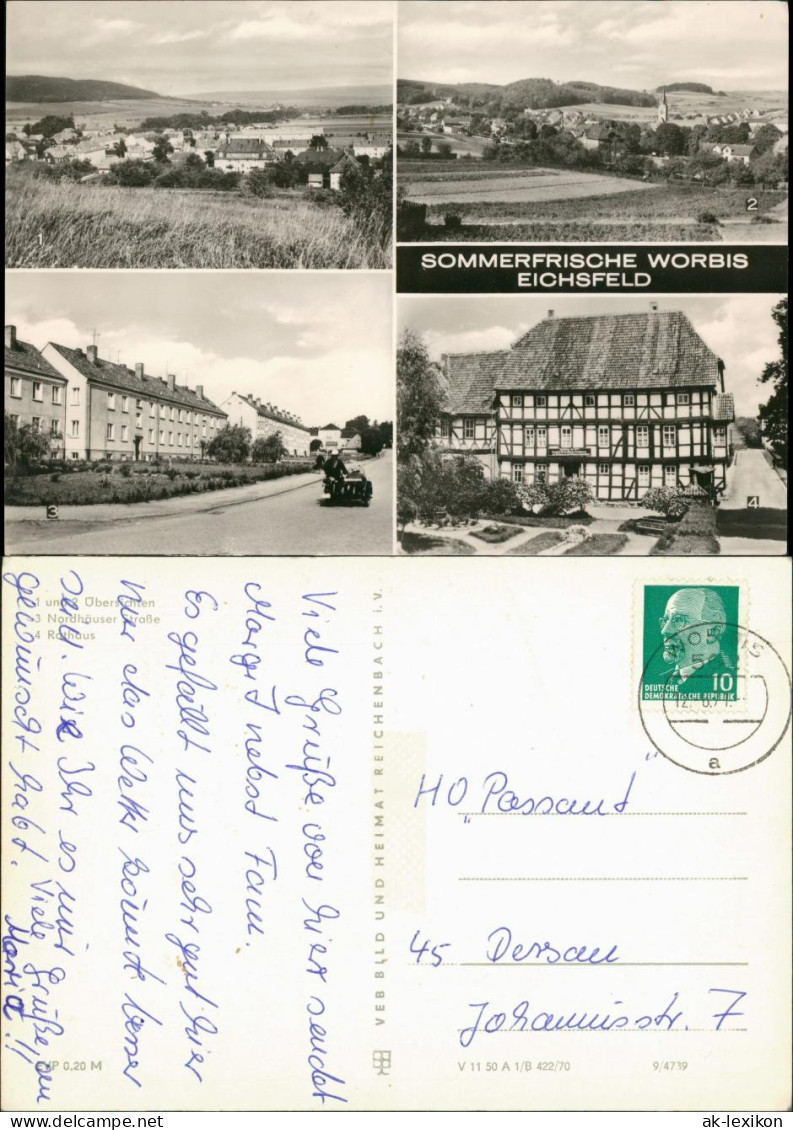 1
2
SOMMERFRISCHE WORBIS
EICHSFELD
3
4
1 und 2 Übersichten
3 Nordhäuser Straße
4 Rathaus
Viele Grüße von hier sendet
Margit nebst Fam.
Es gefällt uns sehr gut hier
Nur das Wetter könnte besser
sein. Wie Ihr es mir
gewünscht habt. Viele Grüße an
Maria!!
EVP 0,20 M
VEB BILD UND HEIMAT REICHENBACH i. V.
DEUTSCHE 10
DEMOKRATISCHE REPUBLIK
WORBIS
a
HO "Passant"
45 Dessau
Johannisstr. 7
V 11 50 A 1/B 422/70 9/4739
www.delcampe.net
ak-lexikon